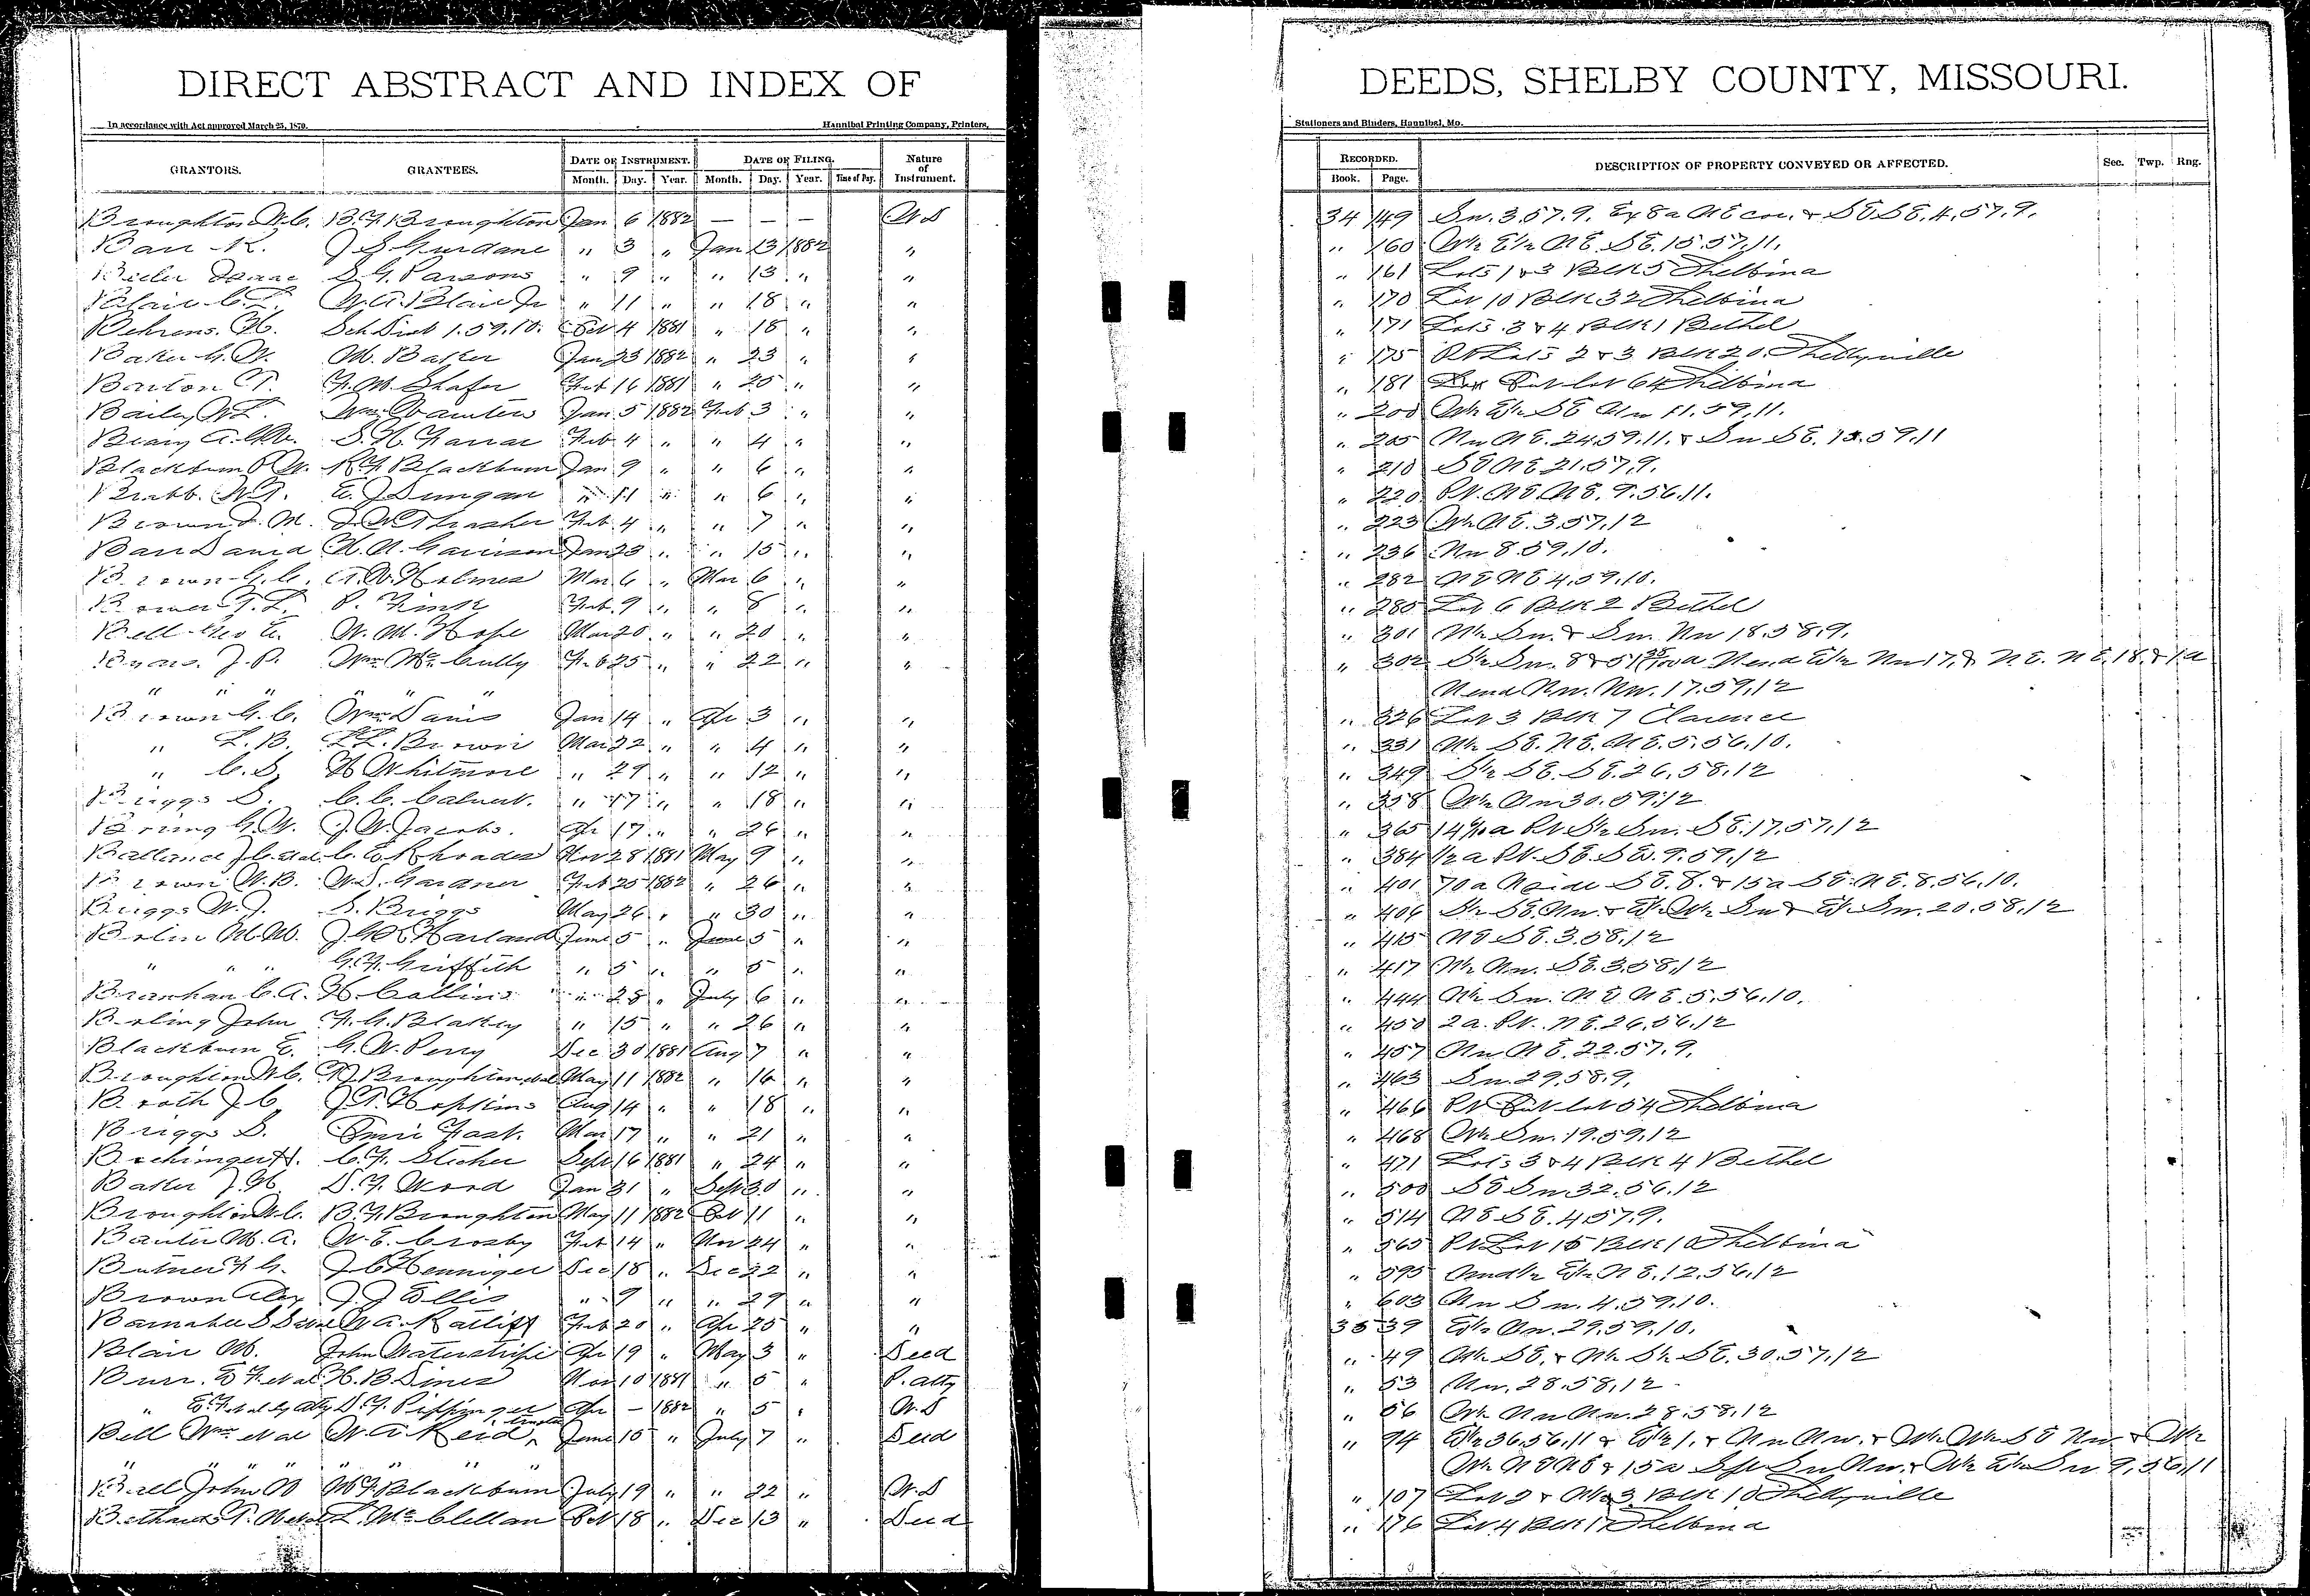 DIRECT ABSTRACT AND INDEX OF
In accordance with Act approved March 25, 1870.
Hannibal Printing Company, Printers,
GRANTORS. GRANTEES. DATE OF INSTRUMENT. DATE OF FILING. Nature of Instrument.
Month. Day. Year. Month. Day. Year. Time of Day.
Broughton W.C. B.F. Broughton Jan 6 1882 — — — W D
Barr K. J S Gurdane " 3 " Jan 13 1882 "
Isaac S.G. Parsons " 9 " " 13 " "
Blair C.T. W.A. Blair Jr " 11 " " 18 " "
Behrens. H. Sch Dist 1.59.10. Oct 4 1881 " 18 " "
Baker G.W. M. Baker Jan 23 1882 " 23 " "
Barton T. F.M. Shafer Feb 16 1881 " 25 "  "
Bailey W.L. Wm Jan 5 1882 Feb 3 " "
S.H. Farrar Feb 4 " " 4 " "
Blackburn P.W. R.F. Blackburn Jan 9 " " 6 " "
Brabb. W.T. E. J Dungan " 11 " " 6 " "
Brown J. M. J W Thrasher Feb 4 " " 7 " "
Barr David H.N. Garrison Jan 23 " " 15 " "
Brown G.C. A.W. Holmes Mar 6 " Mar 6 " "
Bower G.L. P. Fink Feb 9 " " 8 " "
Bell Geo E. W.M. Hope Mar 20 " " 20 " "
Byars. J.P. Wm McCully Feb 25 " " 22 " "
" " " " " "
Brown G.C. Wm Davis Jan 14 " Apr 3 " "
" L.B. L.L. Brown Mar 22 " " 4 " "
" C.S. H Whitmore " 29 " " 12 " "
Briggs S. C.C. Calvert. " 17 " " 18 " "
G.W. J.W. Jacobs. Apr 17 " " 26 " "
Balland J C et al. C.E. Rhoades Nov 28 1881 May 9 " "
Brown W.B. W.S. Gardner Feb 25 1882 " 26 " "
Briggs W.J. S. Briggs May 26 " " 30 " "
Bolin M.M. Harland June 5 " June 5 " "
" " " G.F. Griffith " 5 " " 5 " "
Branham C.A. H Collins " 28 " July 6 " "
Boling John F.G. Blakey " 15 " " 26 " "
Blackburn E. G.W. Perry Dec 30 1881 Aug 7 " "
Broughton W.C. Broughton et al May 11 1882 " 16 " "
Booth J C J.T. Hopkins Aug 14 " " 18 " "
Briggs S. Fast. Mar 17 " " 21 " "
C.F. Steher Sept 16 1881 " 24 " "
Baker J.H. S.F. Wood Jan 31 " Sept 30 " "
Broughton W.C. B.F. Broughton May 11 1882 Oct 11 " "
M.A. W.E. Crosby Feb 14 " Nov 24 " "
Butner F G. J C Henniger Dec 18 " Dec 22 " "
Brown Alex J.J. Ellis " 9 " " 29 " "
W A. Ratliff Feb 20 " Apr 25 " "
Blair M. John Apr 19 " May 3 " Deed
Burr. E F et al H.B. Sines Nov 10 1881 " 5 " P. atty
" E.F. et al by Atty Apr — 1882 " 5 " W.D
Bell Wm et al W.A. Reid, trustee June 15 " July 7 " Deed
" " " " " "
Ball John W.F. Blackburn July 19 " " 22 " W.D
L. McClellan Oct 18 " Dec 13 " Deed
DEEDS, SHELBY COUNTY, MISSOURI.
Stationers and Binders, Hannibal, Mo.
RECORDED. DESCRIPTION OF PROPERTY CONVEYED OR AFFECTED. Sec. Twp. Rng.
Book. Page.
34 149 Sw. 3.57.9. Ex 8 a N E cor. & S E S E. 4.57.9.
" 160 W½ E½ N E. S E. 15.57.11.
" 161 Lots 1 & 3 Blk 5 Shelbina
" 170 Lot 10 Blk 32 Shelbina
" 171 Lots 3 & 4 Blk 1 Bethel
" 175 Pt Lots 2 & 3 Blk 20 Shelbyville
" 181 Out lot 64 Shelbina
" 200 W½ E½ S E 59.11.
" 205 Nw N E. 24.59.11. & Sw S E. 13.59.11
" 210 S E N E 21.57.9.
" 220 Pt. N E. N E. 9.56.11.
" 223 W½ N E. 3.57.12
" 236 Nw 8.59.10.
" 282 N E N E 4.59.10.
" 285 Lot 6 Blk 2 Bethel
" 301 N½ Sw. & Sw. Nw 18.58.9.
" 302 S½ Sw. 8 & 51 35/100 a N end E½ Nw 17, & N.E. N E. 18. & 1 a
N end Nw. Nw. 17.59.12
" 326 Lot 3 Blk 7 Clarence
" 331 N½ S E. N E. N E. 5.56.10.
" 349 S½ S E. S E. 26.58.12
" 358 W½ Nw 30.59.12
" 365 Pt S½ Sw. S E. 17.57.12
" 384 ½ a Pt. S E. S W. 9.59.12
" 401 70 a N side S E. 8. & 15 a S E. N E. 8.56.10.
" 406 S½ S E. Nw. & E½ W½ Sw & E½ Sw. 20.58.12
" 415 N E S E. 3.58.12
" 417 W½ Nw. S E. 3.58.12
" 444 N½ Sw. N E N E. 5.56.10.
" 450 2 a. Pt. N E. 26.56.12
" 457 Nw N E. 22.57.9.
" 463 Sw. 29.58.9.
" 466 Pt Out lot 54 Shelbina
" 468 W½ Sw. 19.59.12
" 471 Lots 3 & 4 Blk 4 Bethel
" 500 S E Sw 32.56.12
" 514 N E S E. 4.57.9.
" 565 Pt Lot 15 Blk 10 Shelbina
" 595 E½ N E. 12.56.12
" 603 Nw Sw. 4.59.10.
35 39 E½ Nw. 29.59.10.
" 49 N½ S E. & N½ S½ S E. 30.57.12
" 53 Nw. 28.58.12
" 56 W½ Nw Nw. 28.58.12
" 74 E½ 36.56.11 & E½ 1. & Nw Nw. & W½ S E Nw & W½
W½ N E N E & 15 a Sw Nw. & W½ E½ Sw 9.56.11
" 107 Lot 2 & 3 Blk 10 Shelbyville
" 176 Lot 4 Blk 17 Shelbina